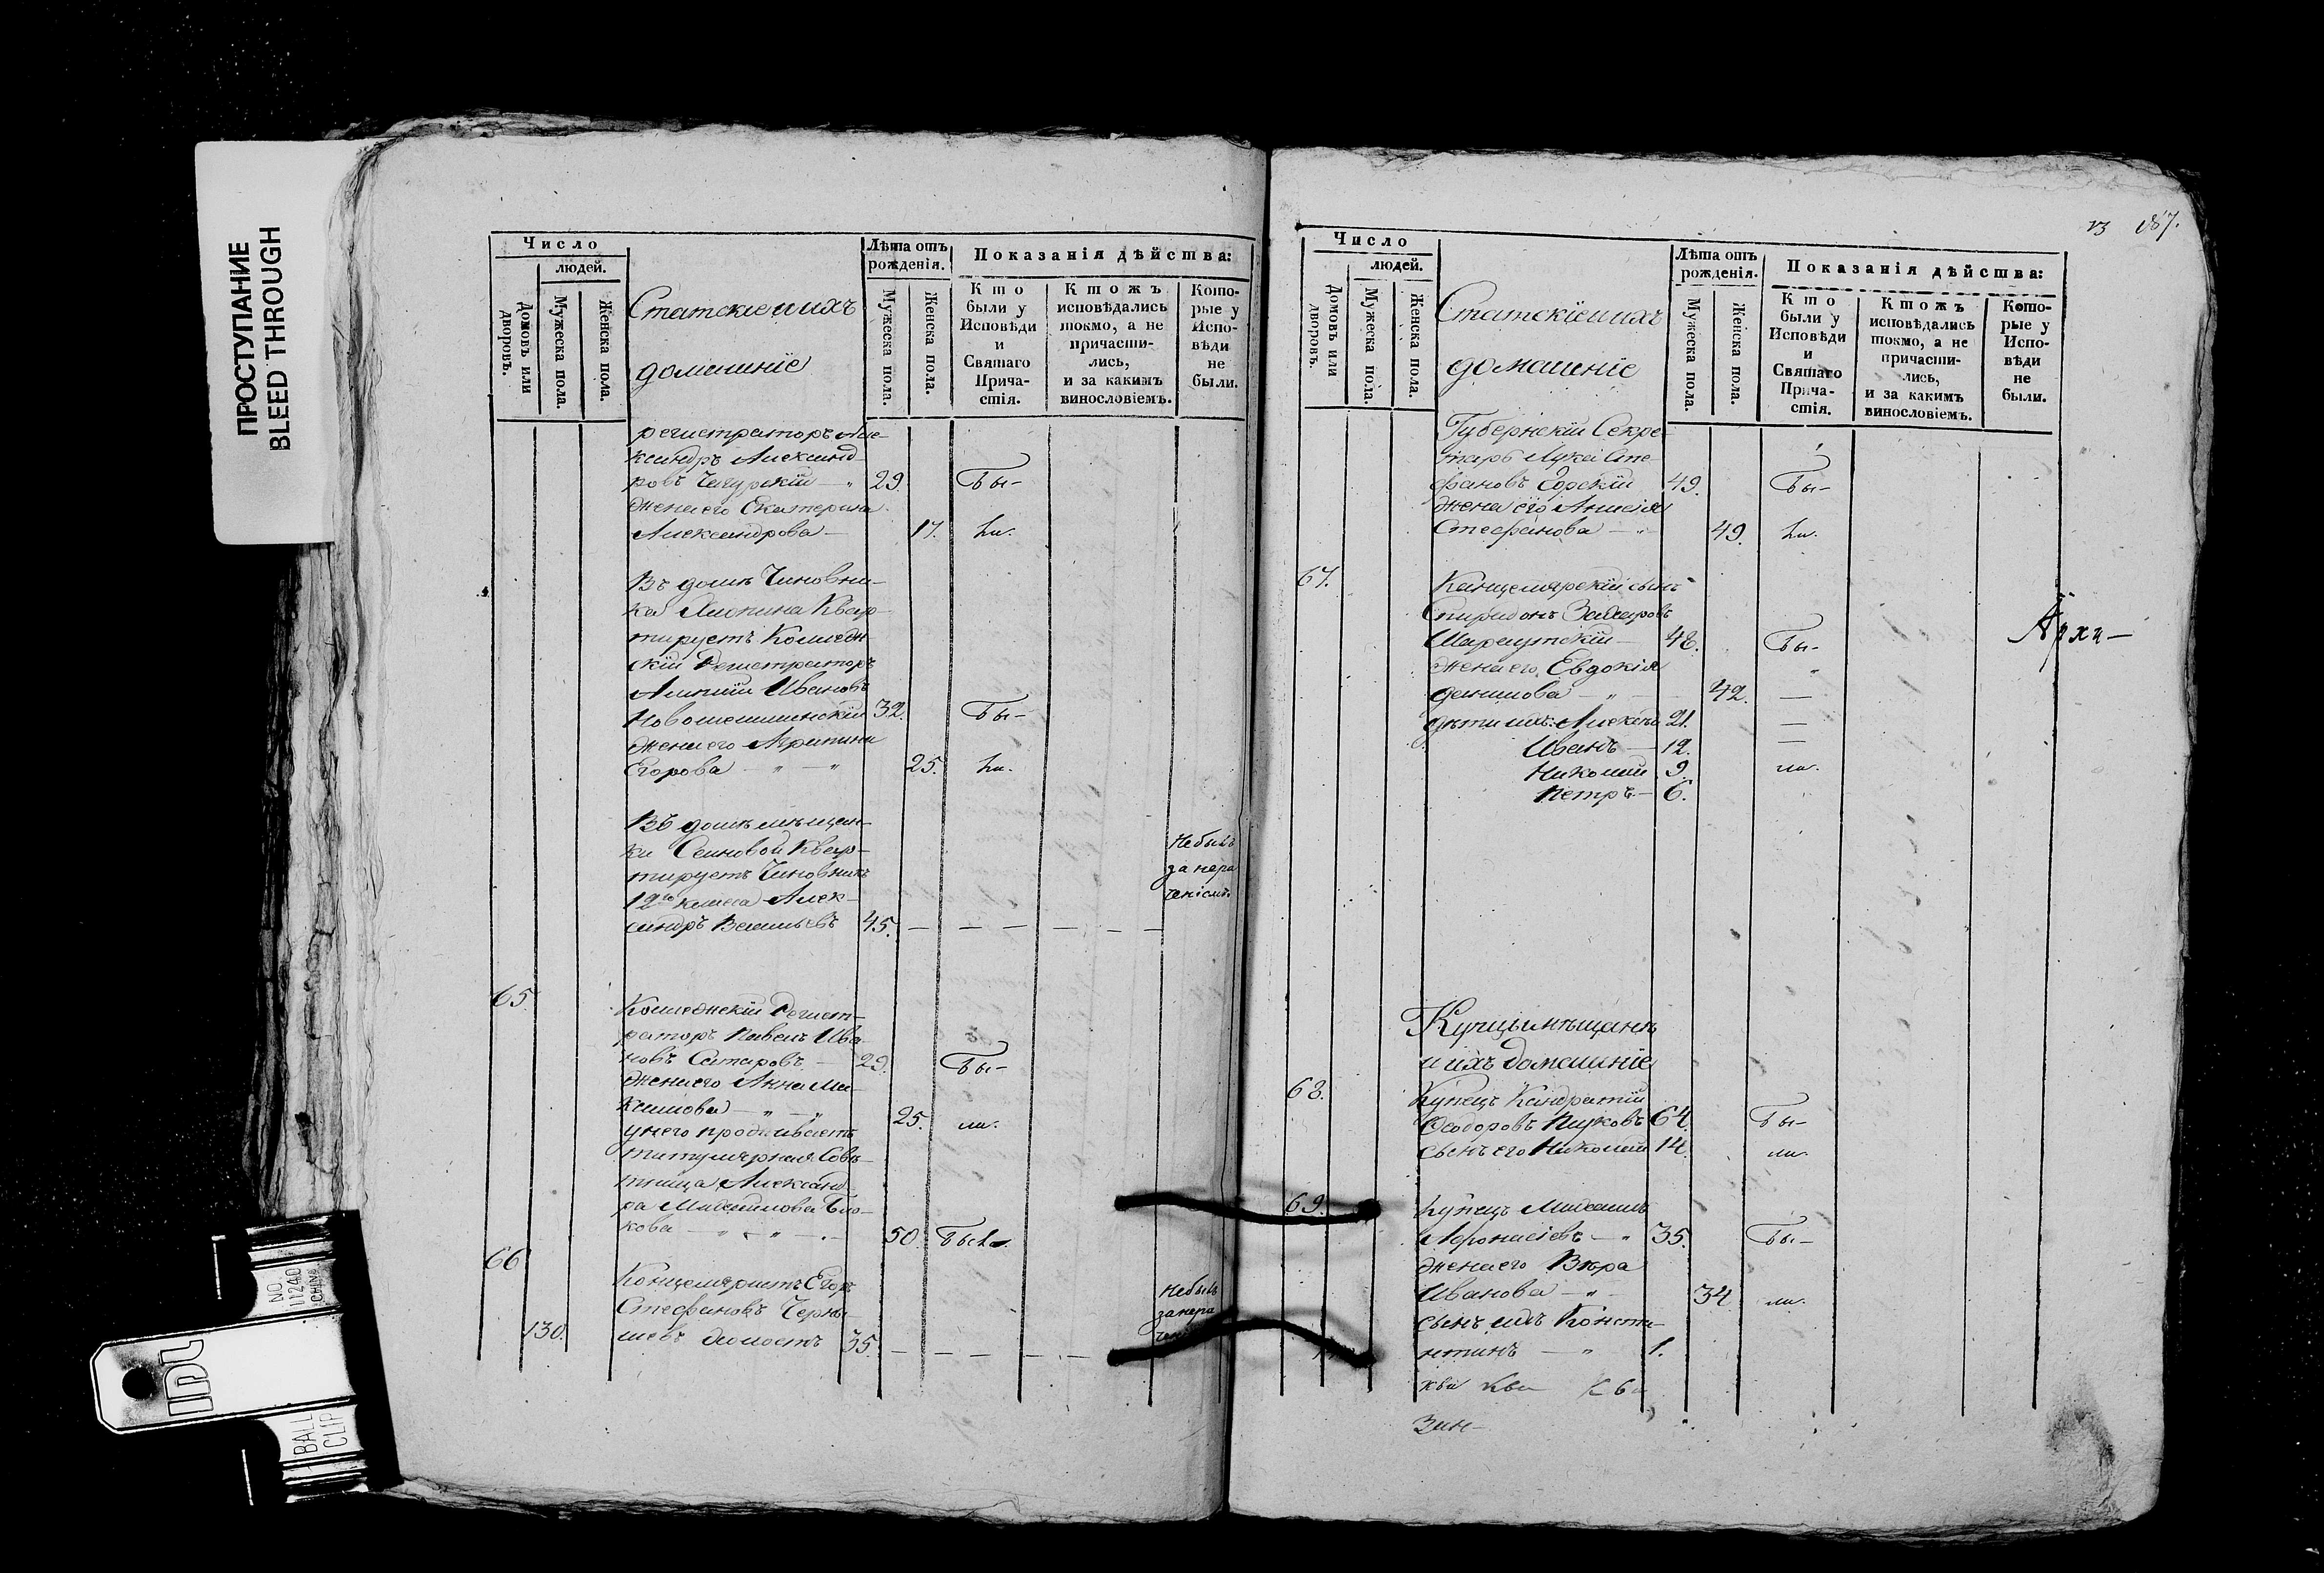 ПРОСТУПАНИЕ
BLEED THROUGH
Число
людей.
Домовъ или дворовъ.
Мужеска пола.
Женска пола.
Статскіе и ихъ
домашніе
Лѣта отъ рожденія.
Мужеска пола.
Женска пола.
Показанія дѣйства:
Кто были у Исповѣди и Святаго Прича-стія.
Ктожъ исповѣдались токмо, а не причасти-лись, и за какимъ винословіемъ.
Кото-рые у Испо-вѣди не были.
регистраторъ Але-
ксандръ Александ-
ровъ 29. Бы-
жена его Екатерина
Александрова — 17. ли.
Въ домѣ Чиновни-
ка Квар-
тируетъ Коллеж 
скій Регистраторъ
Ивановъ
32. Бы-
жена его Агрипина
Егорова — " — " 25. ли.
Въ домѣ мѣщан-
ки Квар-
тируетъ Чиновникъ
12го класса Алек-
сандръ Васильевъ 45. — — — — —
Небылъ
за нера
ченіемъ
65.
Коллежскій Регист-
раторъ Павелъ Ива-
новъ — 29. Бы-
жена его Анна Ма-
ксимова — " — " 25. ли.
у него проживаетъ
титулярная Совѣ-
тница Александ-
ра Михайлова
кова — " — " — 50. Была
66
Канцеляристъ Егоръ
Стефановъ Черны-
шевъ холостъ 35. — — — —
Небылъ
за нера
130.
NO. 11240
CHINA
BALL CLIP
13 187.
Число
людей.
Домовъ или дворовъ.
Мужеска пола.
Женска пола.
Статскіе и ихъ
домашніе
Лѣта отъ рожденія.
Мужеска пола.
Женска пола.
Показанія дѣйства:
Кто были у Исповѣди и Святаго Прича-стія.
Ктожъ исповѣдались токмо, а не причасти-лись, и за какимъ винословіемъ.
Кото-рые у Испо-вѣди не были.
Губернскій Секре-
тарь Лука Сте-
фановъ Горскій 49. Бы-
жена его Анисія
Стефанова — " 49. ли.
67.
Канцелярскій сынъ
Спиридонъ Захаровъ
48. Бы-
жена его Евдокія
Данилова — " — 42. —
дѣти ихъ: Алексѣй 21. —
Иванъ — 12. —
Николай 9. ли.
Петръ — 6.
Архи—
Купцы мѣщанъ
и ихъ домашніе
68.
Купецъ Кандратій
Ѳеодоровъ 64. Бы-
сынъ его Николай 14. ли.
69.
Купецъ Михаилъ
Афонасіевъ — " 35. Бы-
жена его Вѣра
Иванова — " — 34 ли.
сынъ ихъ Конста-
нтинъ — " 1.